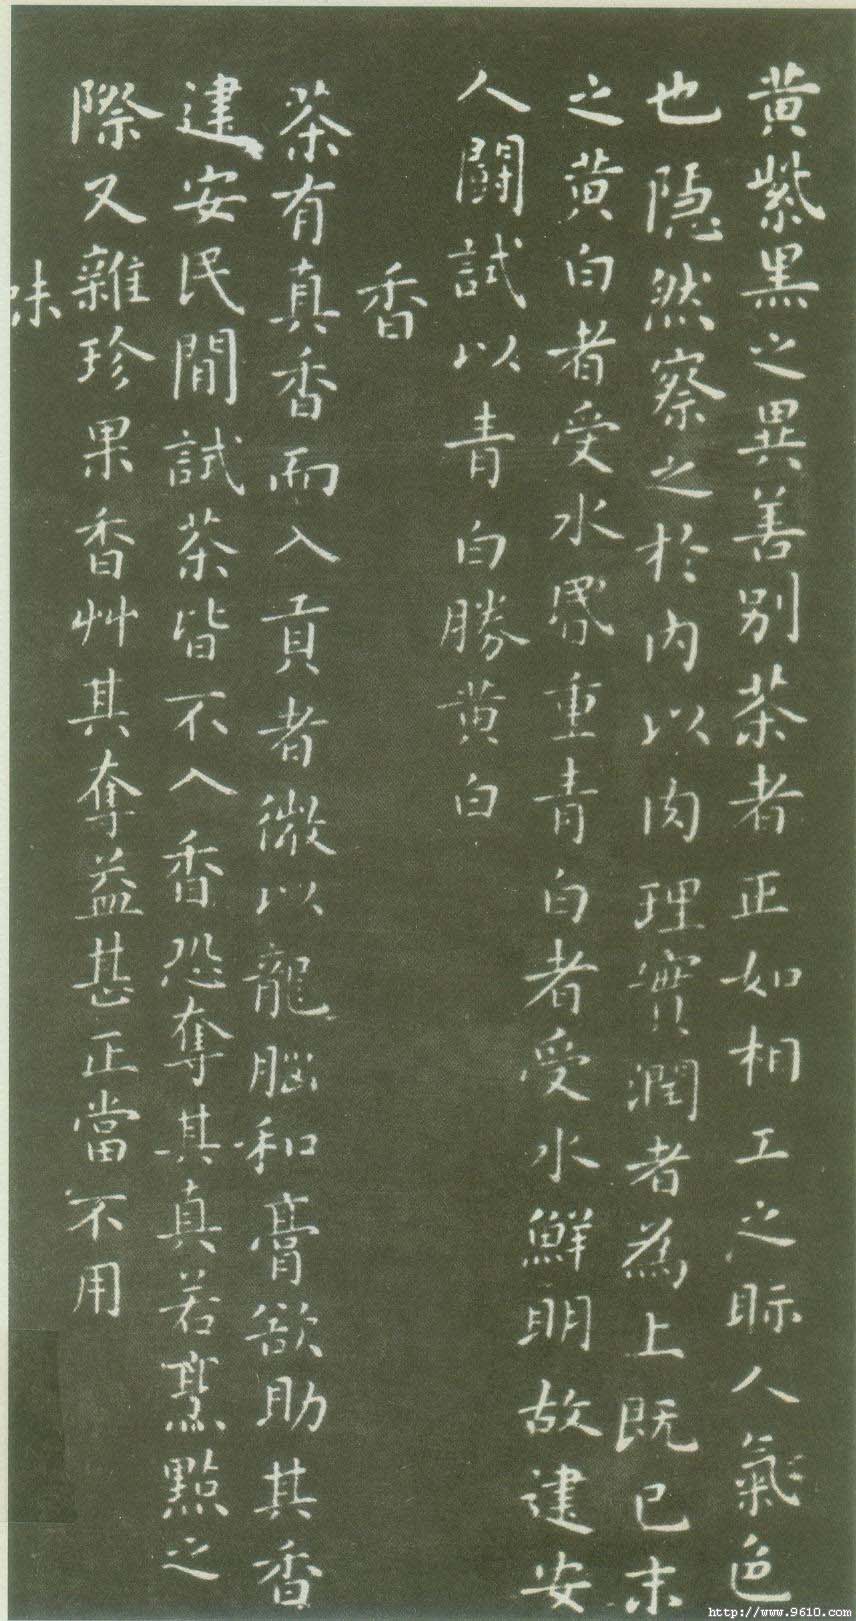 黄紫黑之異善別茶者正如相工之眎人氣色
也隱然察之於内以肉理實潤者為上既已末
之黄白者受水昬重青白者受水鮮明故建安
人鬬試以青白勝黄白
香
茶有真香而入貢者微以龍腦和膏欲助其香
建安民間試茶皆不入香恐奪其真若烹點之
際又雜珍果香艸其奪益甚正當不用
味
http://www.9610.com